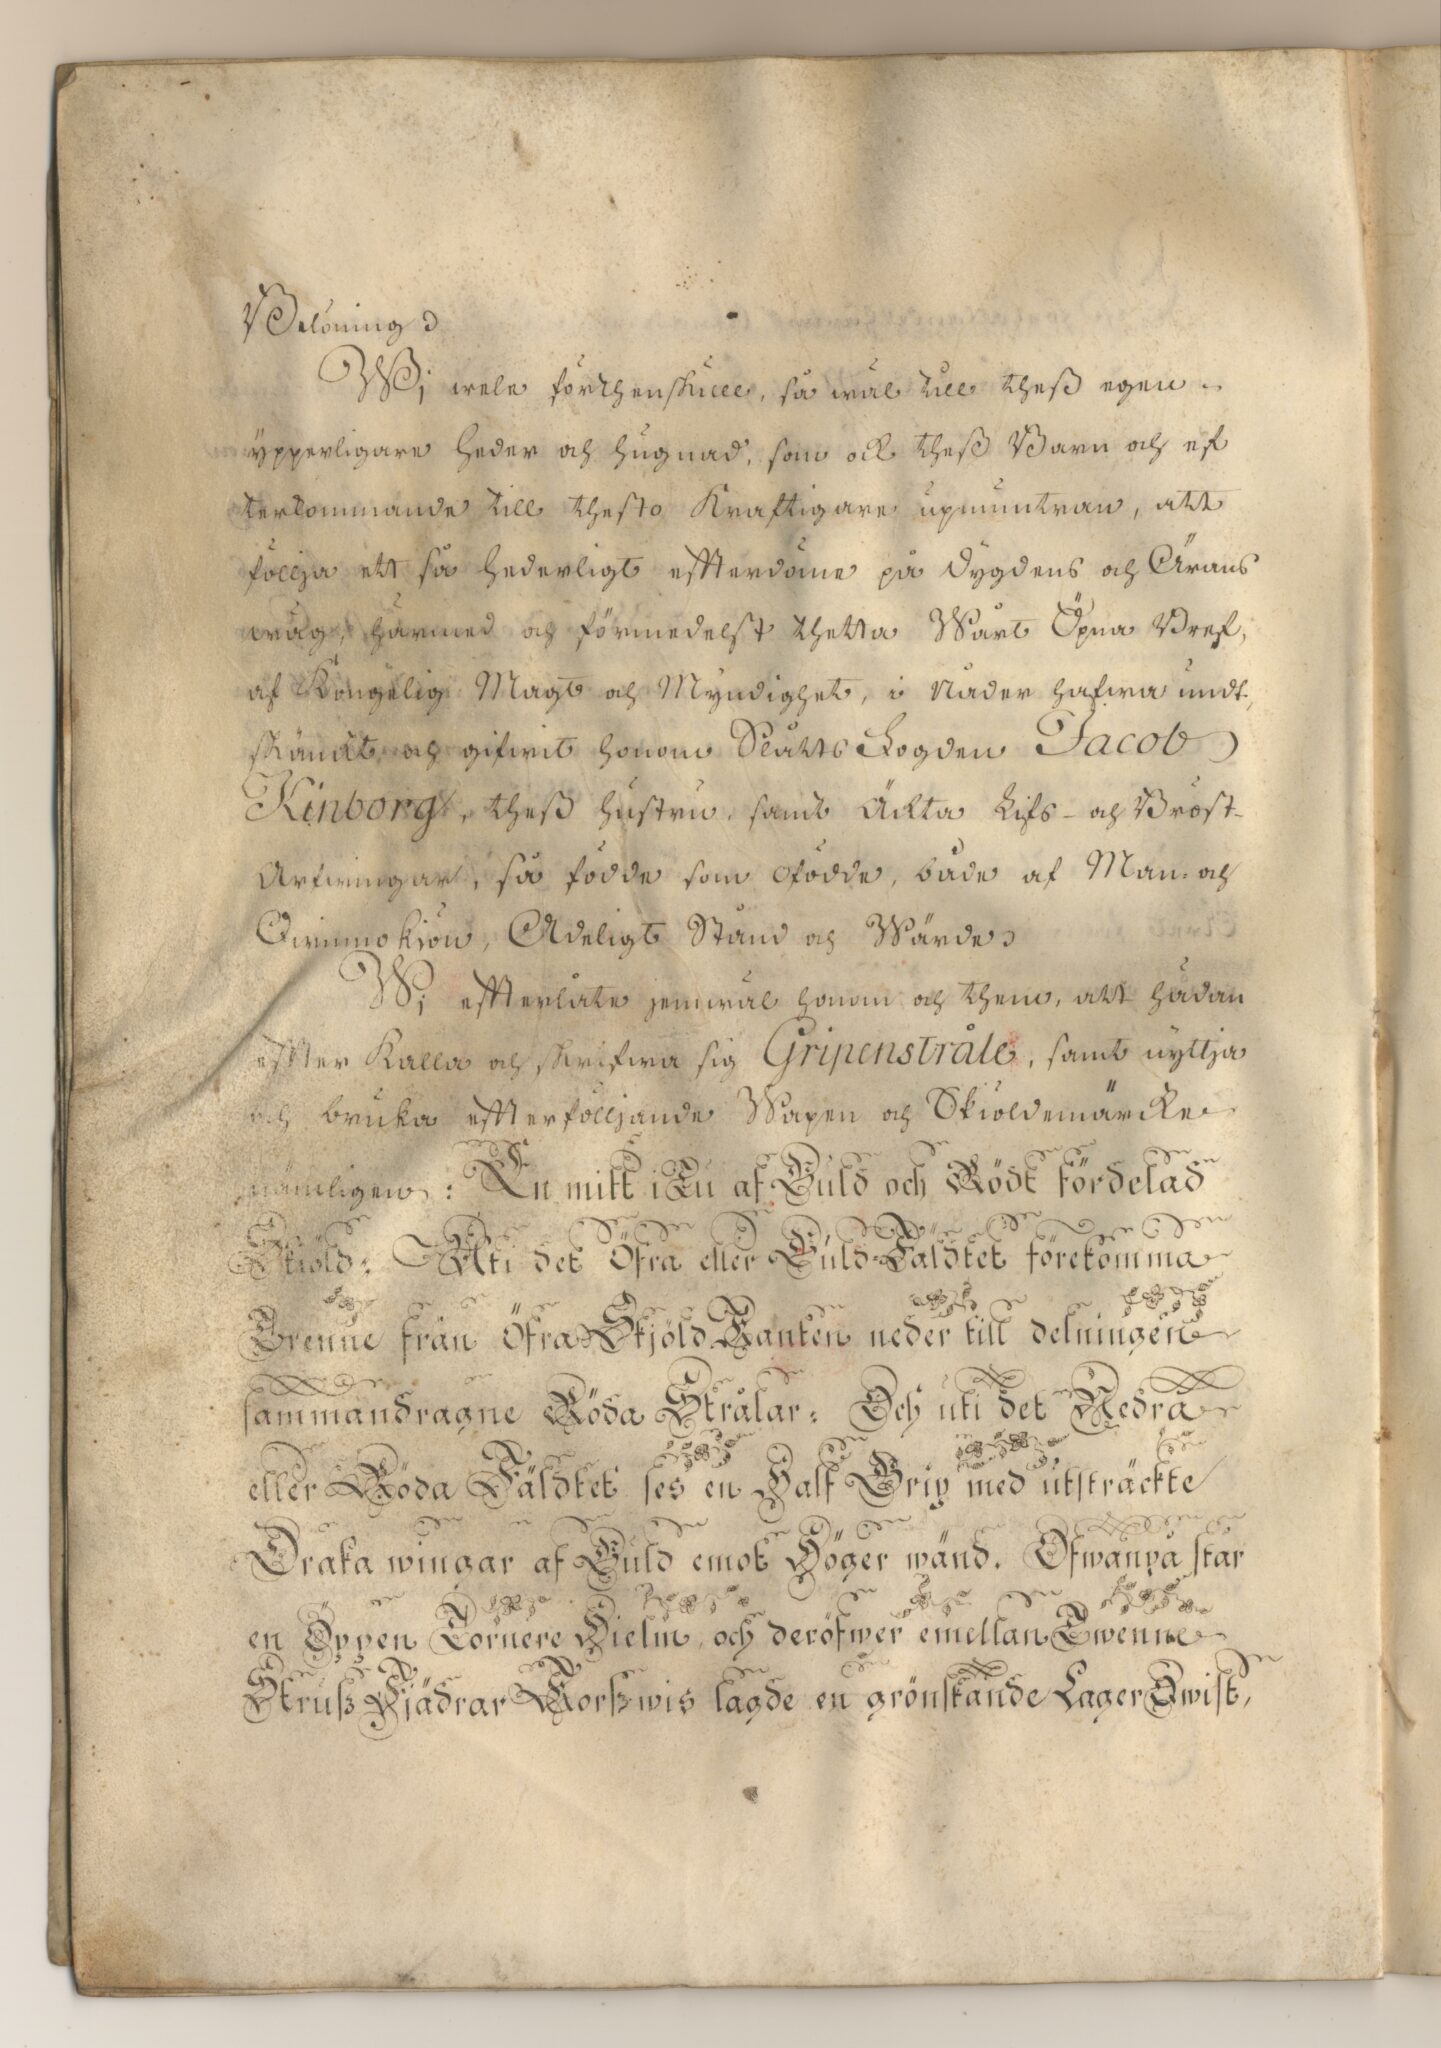 Belöning.
Wi wele förthenskull, så wäl till theß egen
ypperligare heder och hugnad, som ock theß Barn och ef
terkommande till thesto kraftigare upmuntran, att
föllja ett så hederligt effterdöme på dygdens och Ärans
wäg, härmed och förmedelst thetta Wårt Öpna Bref,
af Konglig Magt och Myndighet, i Nåder hafwa undt,
skänkt och gifwit honom SlåttsFogden Jacob
Kinborg, theß hustru, samt Äkta Lifs- och Bröst-
Arfwingar, så födde som ofödde, både af Man- och
Qwinnokiön, Adeligt Stånd och Wärde.
Wi effterlåte jemwäl honom och them, att hädan
effter kalla och skrifwa sig Gripenstråle, samt nyttja
och bruka effterfölljande Wapen och Skiöldemärcke
nämligen: En mitt i Tu af Guld och Rödt fördelad
Skiöld: Uti det Öfra eller Guld-Fäldtet förekomma
Trenne från Öfra Skjöld Kanten neder till delningen
sammandragne Röda Strålar: Och uti det Nedra
eller Röda Fäldtet ses en Half Grip med utsträckte
Draka wingar af Guld emot Höger wänd. Ofwanpå står
en Öppen Tornere Hielm, och deröfwer emellan Twenne
Struß Fjädrar Korßwis lagde en grönskande Lager Qwist,